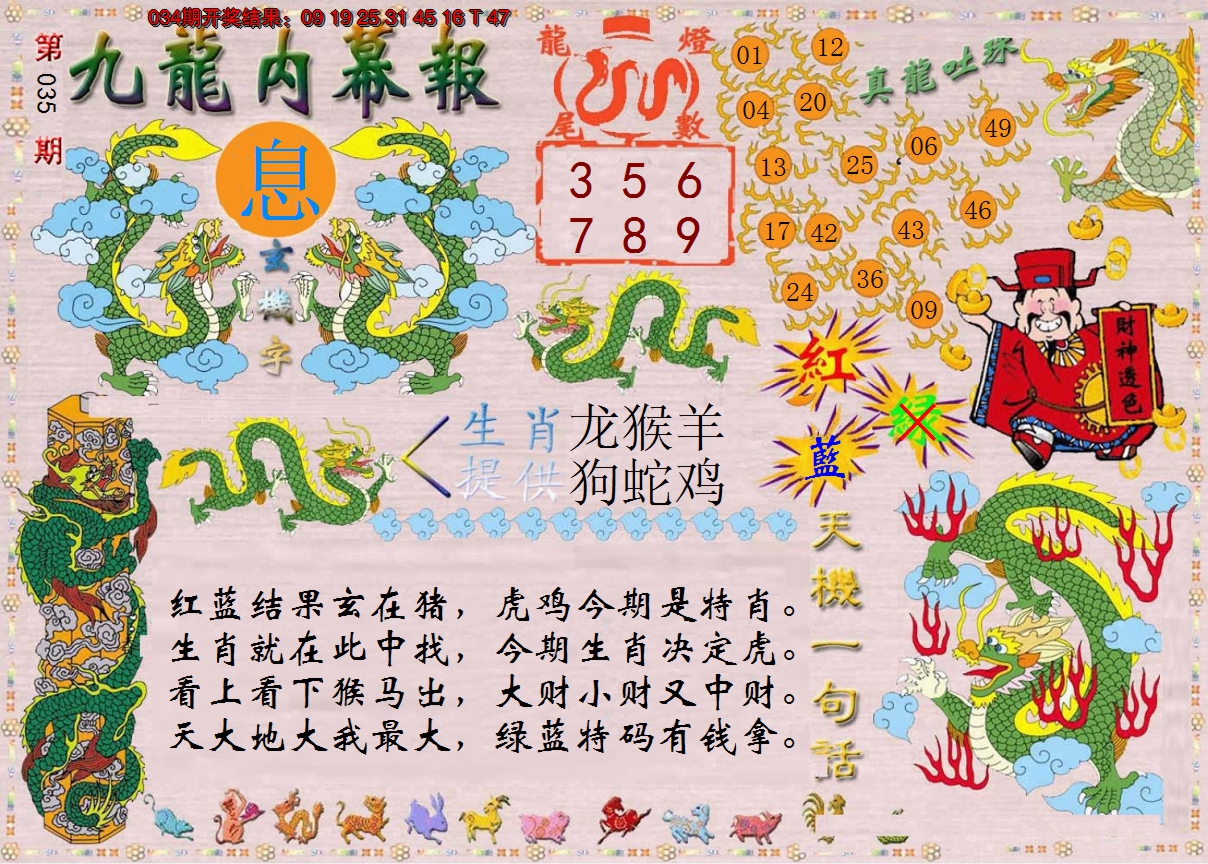 034期开奖结果：09 19 25 31 45 16 T 47
第035期
九龍内幕報
息
玄機字
龍燈
尾數
3 5 6
7 8 9
真龍吐珠
01
12
04
20
49
06
13
25
46
17
42
43
36
24
09
紅
绿
藍
財神透色
生肖提供
龙猴羊
狗蛇鸡
天機一句話
红蓝结果玄在猪，虎鸡今期是特肖。
生肖就在此中找，今期生肖决定虎。
看上看下猴马出，大财小财又中财。
天大地大我最大，绿蓝特码有钱拿。